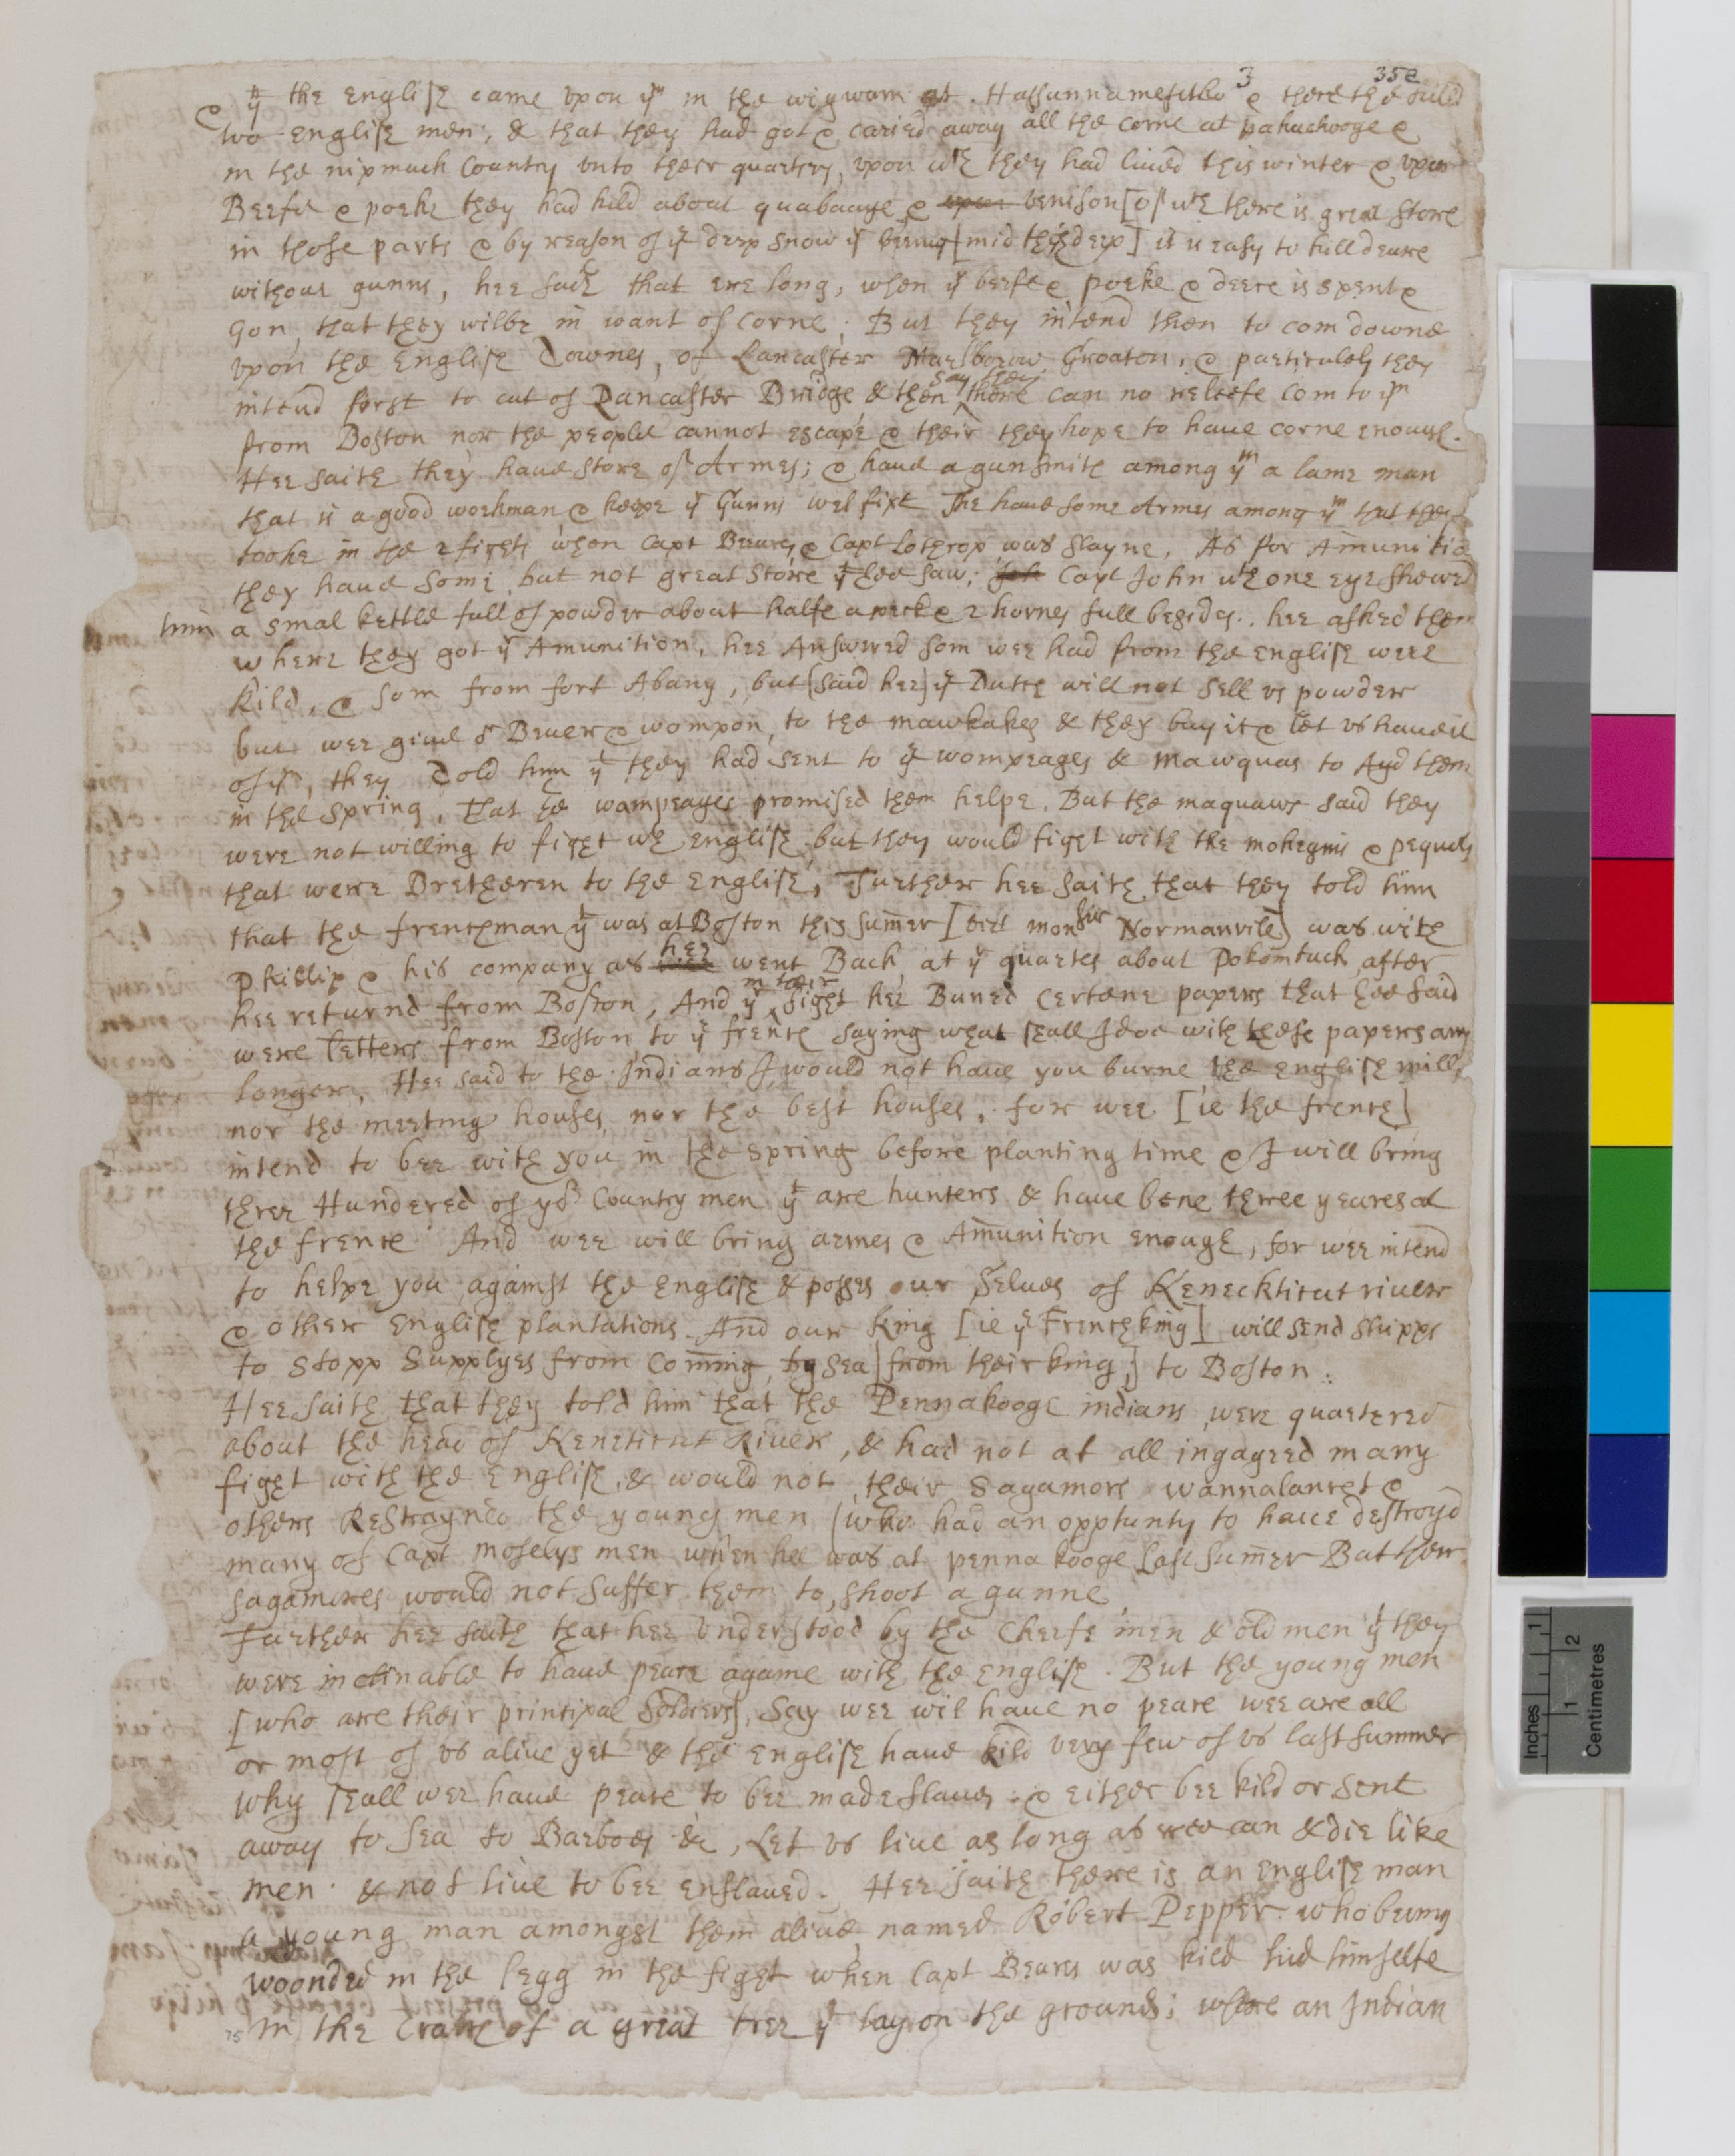 3 35e
& yt the English came vpon ym in the wigwam at Hassunnamesitko & there the kild
two English men; & that they had got & caried away all the corne at pakachooge &
in the nipmuck Country vnto their quarters, vpon wch they had liued this winter & vpon
Beefe & porke they had kild about quabaage, & venison [of wch there is great store
in those parts & by reason of ye deep snow yr beeing [mid thigh deep] it is easy to kill deare
without gunns, hee saith that ere long, when yr beefe & porke & deere is spent &
gon, that they wilbe in want of corne; But they intend then to com downe
vpon the English Townes, of Lancaster Marlborow Groaton, & particulely they
intend first to cut of Lancaster Bridge & then say they there can no releefe com to ym
from Boston nor the people cannot escape & their they hope to haue corne enough.
Hee saith they haue store of Armes; & haue a gunsmith among ym a lame man
that is a good workman & keepe yr Gunns wel fixt The haue some Armes among ym that they
tooke in the 2 fights when Capt Beares & Capt Lothrop was slayne, As for Amunitio
they haue some, but not great store yt hee saw; Capt John wth one eye shewed
him a smal kettle full of powder about halfe a peck & 2 hornes full besides. hee asked them
where they got yr Amunition, hee Answered som wee had from the English were
kild, & som from fort Abany, but [said hee] ye Dutch will not sell vs powder
but wee giue or Beuer & wompon, to the mawhakes & they buy it & let vs haue it
of ym, they Told him yt they had sent to ye wompeages & mawquas to Ayd them
in the spring, That ye wampeages promised them helpe. But the maquaws said they
were not willing to fight wth English, but they would fight with the mohegins & pequots
that were Bretheren to the English, Further hee saith that they told him
that the frenchman yt was at Boston this sumer [viz monsir Normanvile] was with
Phillip & his company as hee went Back, at yr quartes about Pokomtuck after
hee returnd from Boston, And in their ye sight hee Buned certene papers that hee said
were letters from Boston to ye french saying what shall I doe with these papers any
longer, Hee said to the Indians I would not haue you burne the english mills,
nor the meeting houses, nor the best houses, for wee [ie the french]
intend to bee with you in the spring before planting time & I will bring
three Hundered of yor Country men yt are hunters & haue bene three yeares at
the french And wee will bring armes & Amunition enough, for wee intend
to helpe you against the English & posses our selues of Keneckticut riuer
& other English plantations And our King [ie ye French king] will send shipps
to stopp Supplyes from coming by sea [from their king,] to Boston:.
Hee saith that they told him that the Pennakooge indians were quartered
about the head of Keneticut River, & had not at all ingageed in any
fight with the English, & would not, their Sagamors wannalanset &
others Restrayned the young men (who had an opptunty to haue destroyd
many of Capt moselys men when hee was at pennakooge last sumer But their
sagamores would not suffer them to shoot a gunne
Further hee saith that hee vnderstood by the Cheefe men & old men yt they
were inclinable to haue peace againe with the English. But the young men
[who are their principal Soldiers], say wee wil haue no peace wee are all
or most of vs aliue yet & the English haue kild very few of vs last summer
why shall wee haue peace to bee made slaues, & either bee kild or sent
away to sea to Barbodes &c, Let vs liue as long as wee can & die like
men & not liue to bee enslaued. Hee saith there is an English man
a young man amongst them aliue, named Robert Pepper who being
woonded in the legg in the fight when Capt Beares was kild hid himselfe
in the Crotch of a great tree yt lay on the ground; where an Indian